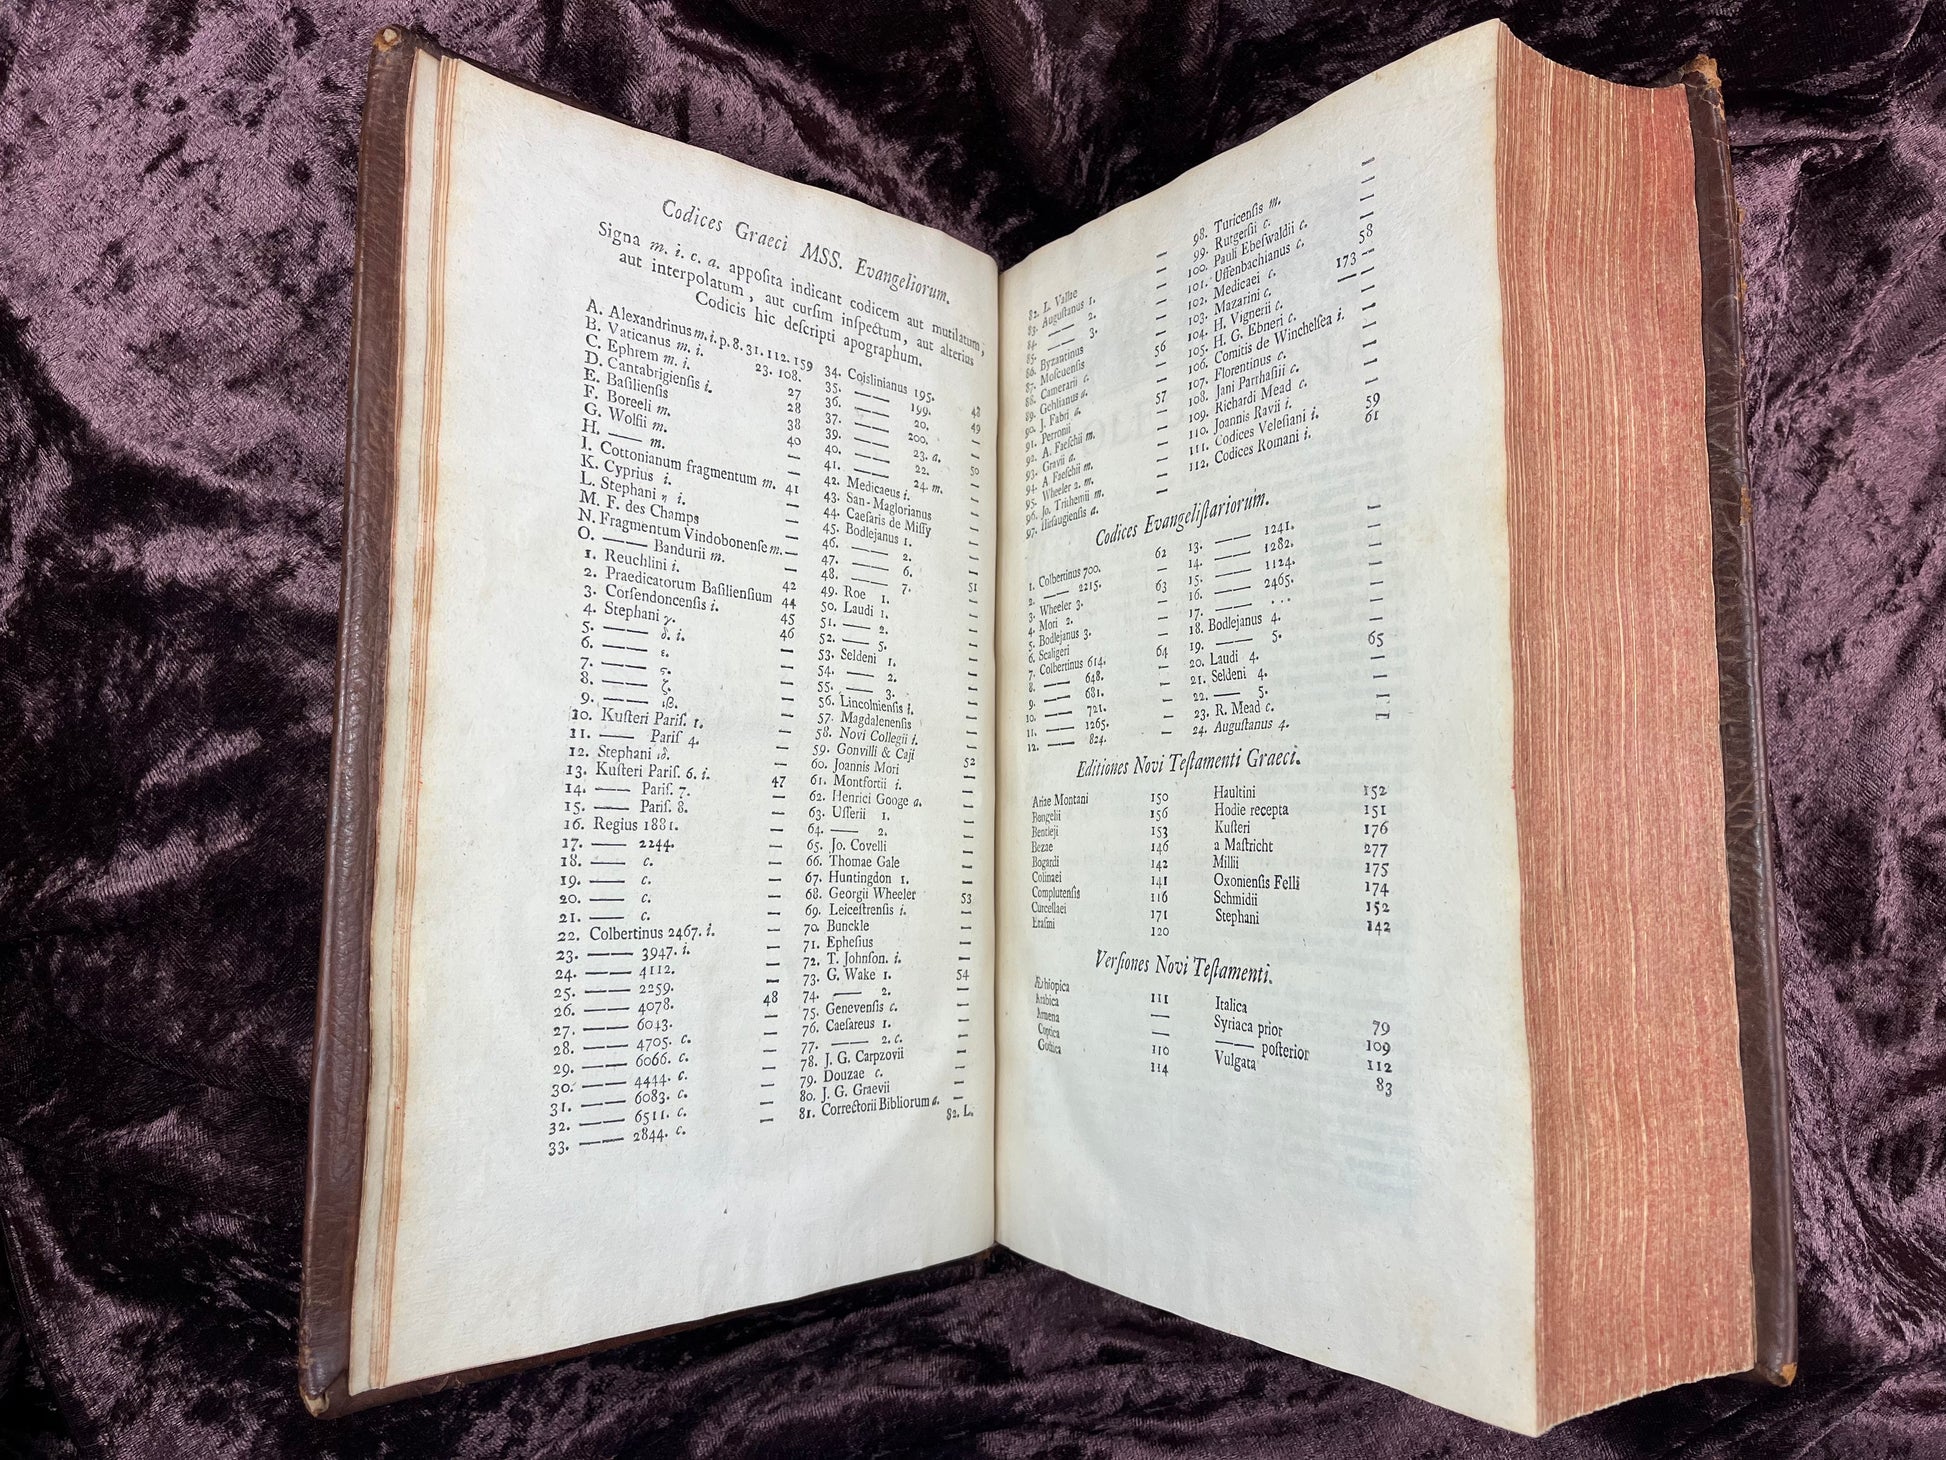 Codices Graeci MSS. Evangeliorum.
Signa m. i. c. a. apposita indicant codicem aut mutilatum,
aut interpolatum, aut cursim inspectum, aut alterius
Codicis hic descripti apographum.
A. Alexandrinus m. i. p. 8. 31. 112. 159
B. Vaticanus m. i. 23. 108.
C. Ephrem m. i. 27
D. Cantabrigiensis i. 28
E. Basiliensis 38
F. Boreeli m. 40
G. Wolfii m. —
H. —— m. —
I. Cottonianum fragmentum m. 41
K. Cyprius i. —
L. Stephani η i. —
M. F. des Champs —
N. Fragmentum Vindobonense m. —
O. —— Bandurii m. —
1. Reuchlini i. 42
2. Praedicatorum Basiliensium 44
3. Corsendoncensis i. 45
4. Stephani γ. 46
5. —— δ. i. —
6. —— ε. —
7. —— ϛ. —
8. —— ζ. —
9. —— ιβ. —
10. Kusteri Paris. 1. —
11. —— Paris 4. —
12. Stephani ιδ. —
13. Kusteri Paris. 6. i. 47
14. —— Paris. 7. —
15. —— Paris. 8. —
16. Regius 1881. —
17. —— 2244. —
18. —— c. —
19. —— c. —
20. —— c. —
21. —— c. —
22. Colbertinus 2467. i. —
23. —— 3947. i. —
24. —— 4112. —
25. —— 2259. 48
26. —— 4078. —
27. —— 6043. —
28. —— 4705. c. —
29. —— 6066. c. —
30. —— 4444. c. —
31. —— 6083. c. —
32. —— 6511. c. —
33. —— 2844. c. —
34. Coislinianus 195. 48
35. —— 199. 49
36. —— 20. —
37. —— 200. —
39. —— 23. a. 50
40. —— 22. —
41. —— 24. m. —
42. Medicaeus i. —
43. San-Maglorianus —
44. Caesaris de Missy —
45. Bodlejanus 1. —
46. —— 2. —
47. —— 6. —
48. —— 7. 51
49. Roe 1. —
50. Laudi 1. —
51. —— 2. —
52. —— 5. —
53. Seldeni 1. —
54. —— 2. —
55. —— 3. —
56. Lincolniensis i. —
57. Magdalenensis —
58. Novi Collegii i. —
59. Gonvilli & Caji —
60. Joannis Mori 52
61. Montfortii i. —
62. Henrici Googe a. —
63. Usserii 1. —
64. —— 2. —
65. Jo. Covelli —
66. Thomae Gale —
67. Huntingdon 1. —
68. Georgii Wheeler 53
69. Leicestrensis i. —
70. Bunckle —
71. Ephesius —
72. T. Johnson. i. —
73. G. Wake 1. 54
74. —— 2. —
75. Genevensis c. —
76. Caesareus 1. —
77. —— 2. c. —
78. J. G. Carpzovii —
79. Douzae c. —
80. J. G. Graevii —
81. Correctorii Bibliorum a. —
82. L.
82. L. Vallae —
83. Augustanus 1. —
84. —— 2. —
85. —— 3. —
86. Byzantinus —
87. Moscuensis 56
88. Camerarii c. —
89. Gehlianus a. —
90. J. Fabri a. 57
91. Perronii —
92. A. Faeschii m. —
93. Gravii a. —
94. A Faeschii m. —
95. Wheeler 2. m. —
96. Jo. Trithemii m. —
97. Hirsaugiensis a. —
98. Turicensis m. —
99. Rurgersii c. —
100. Pauli Ebeswaldii c. —
101. Uffenbachianus c. —
102. Medicaei c. 58
103. Mazarini c. 173 —
104. H. Vignerii c. —
105. H. G. Ebneri c. —
106. Comitis de Winchelsea i. —
107. Florentinus c. —
108. Jani Parrhasii c. —
109. Richardi Mead c. —
110. Joannis Ravii i. —
111. Codices Velesiani i. 59
112. Codices Romani i. 61
Codices Evangelistariorum.
1. Colbertinus 700. 62
2. —— 2215. —
3. Wheeler 3. 63
4. Mori 2. —
5. Bodlejanus 3. —
6. Scaligeri —
7. Colbertinus 614. 64
8. —— 648. —
9. —— 681. —
10. —— 721. —
11. —— 1265. —
12. —— 824. —
13. —— 1241. —
14. —— 1282. —
15. —— 1124. —
16. —— 2465. —
17. —— . . . —
18. Bodlejanus 4. —
19. —— 5. —
20. Laudi 4. 65
21. Seldeni 4. —
22. —— 5. —
23. R. Mead c. —
24. Augustanus 4. —
Editiones Novi Testamenti Graeci.
Ariae Montani 150
Bengelii 156
Bentleji 153
Bezae 146
Bogardi 142
Colinaei 141
Complutensis 116
Curcellaei 171
Erasmi 120
Haultini 152
Hodie recepta 151
Kusteri 176
a Mastricht 277
Millii 175
Oxoniensis Felli 174
Schmidii 152
Stephani 142
Versiones Novi Testamenti.
Æthiopica 111
Arabica —
Armena —
Coptica 110
Gothica 114
Italica 79
Syriaca prior 109
—— posterior 112
Vulgata 83